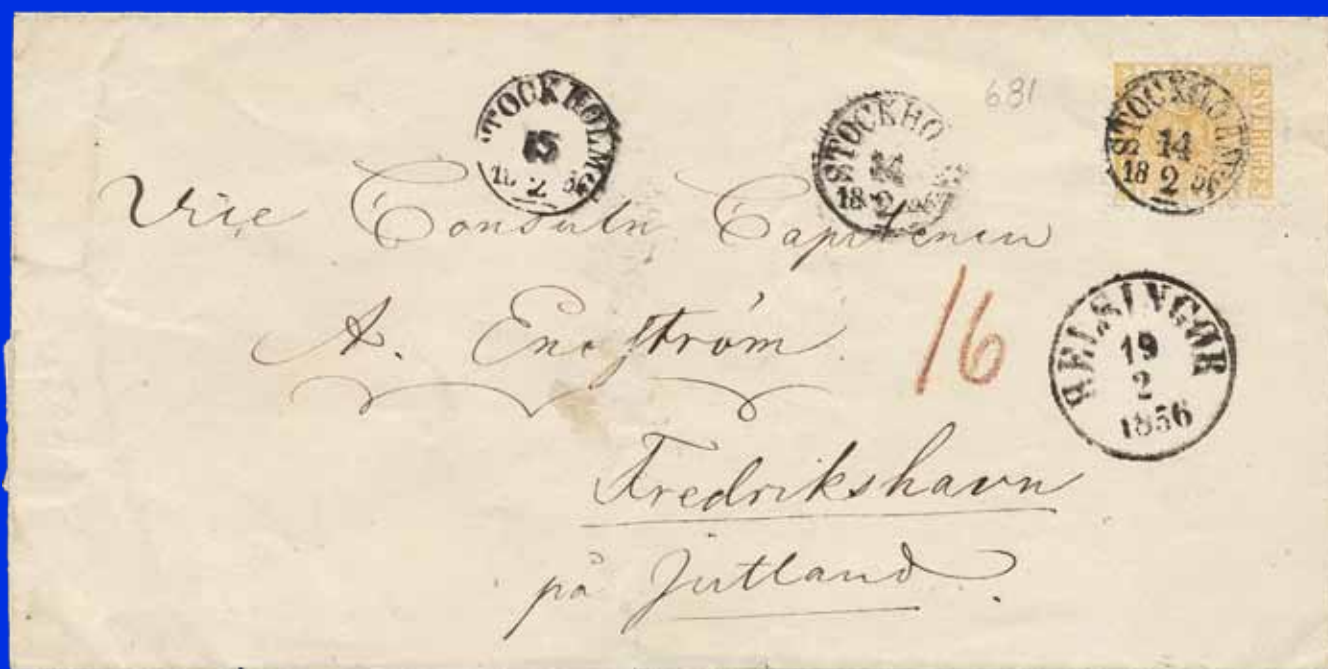 681
STOCKHOLM
15
18 2 56
STOCKHOLM
14
18 2 56
STOCKHOLM
14
18 2 56
SVERIGE
Vice Consuln Capitenen
A. Engström
16
HELSINGØR
19
2
1856
Fredrikshavn
på Jutland.